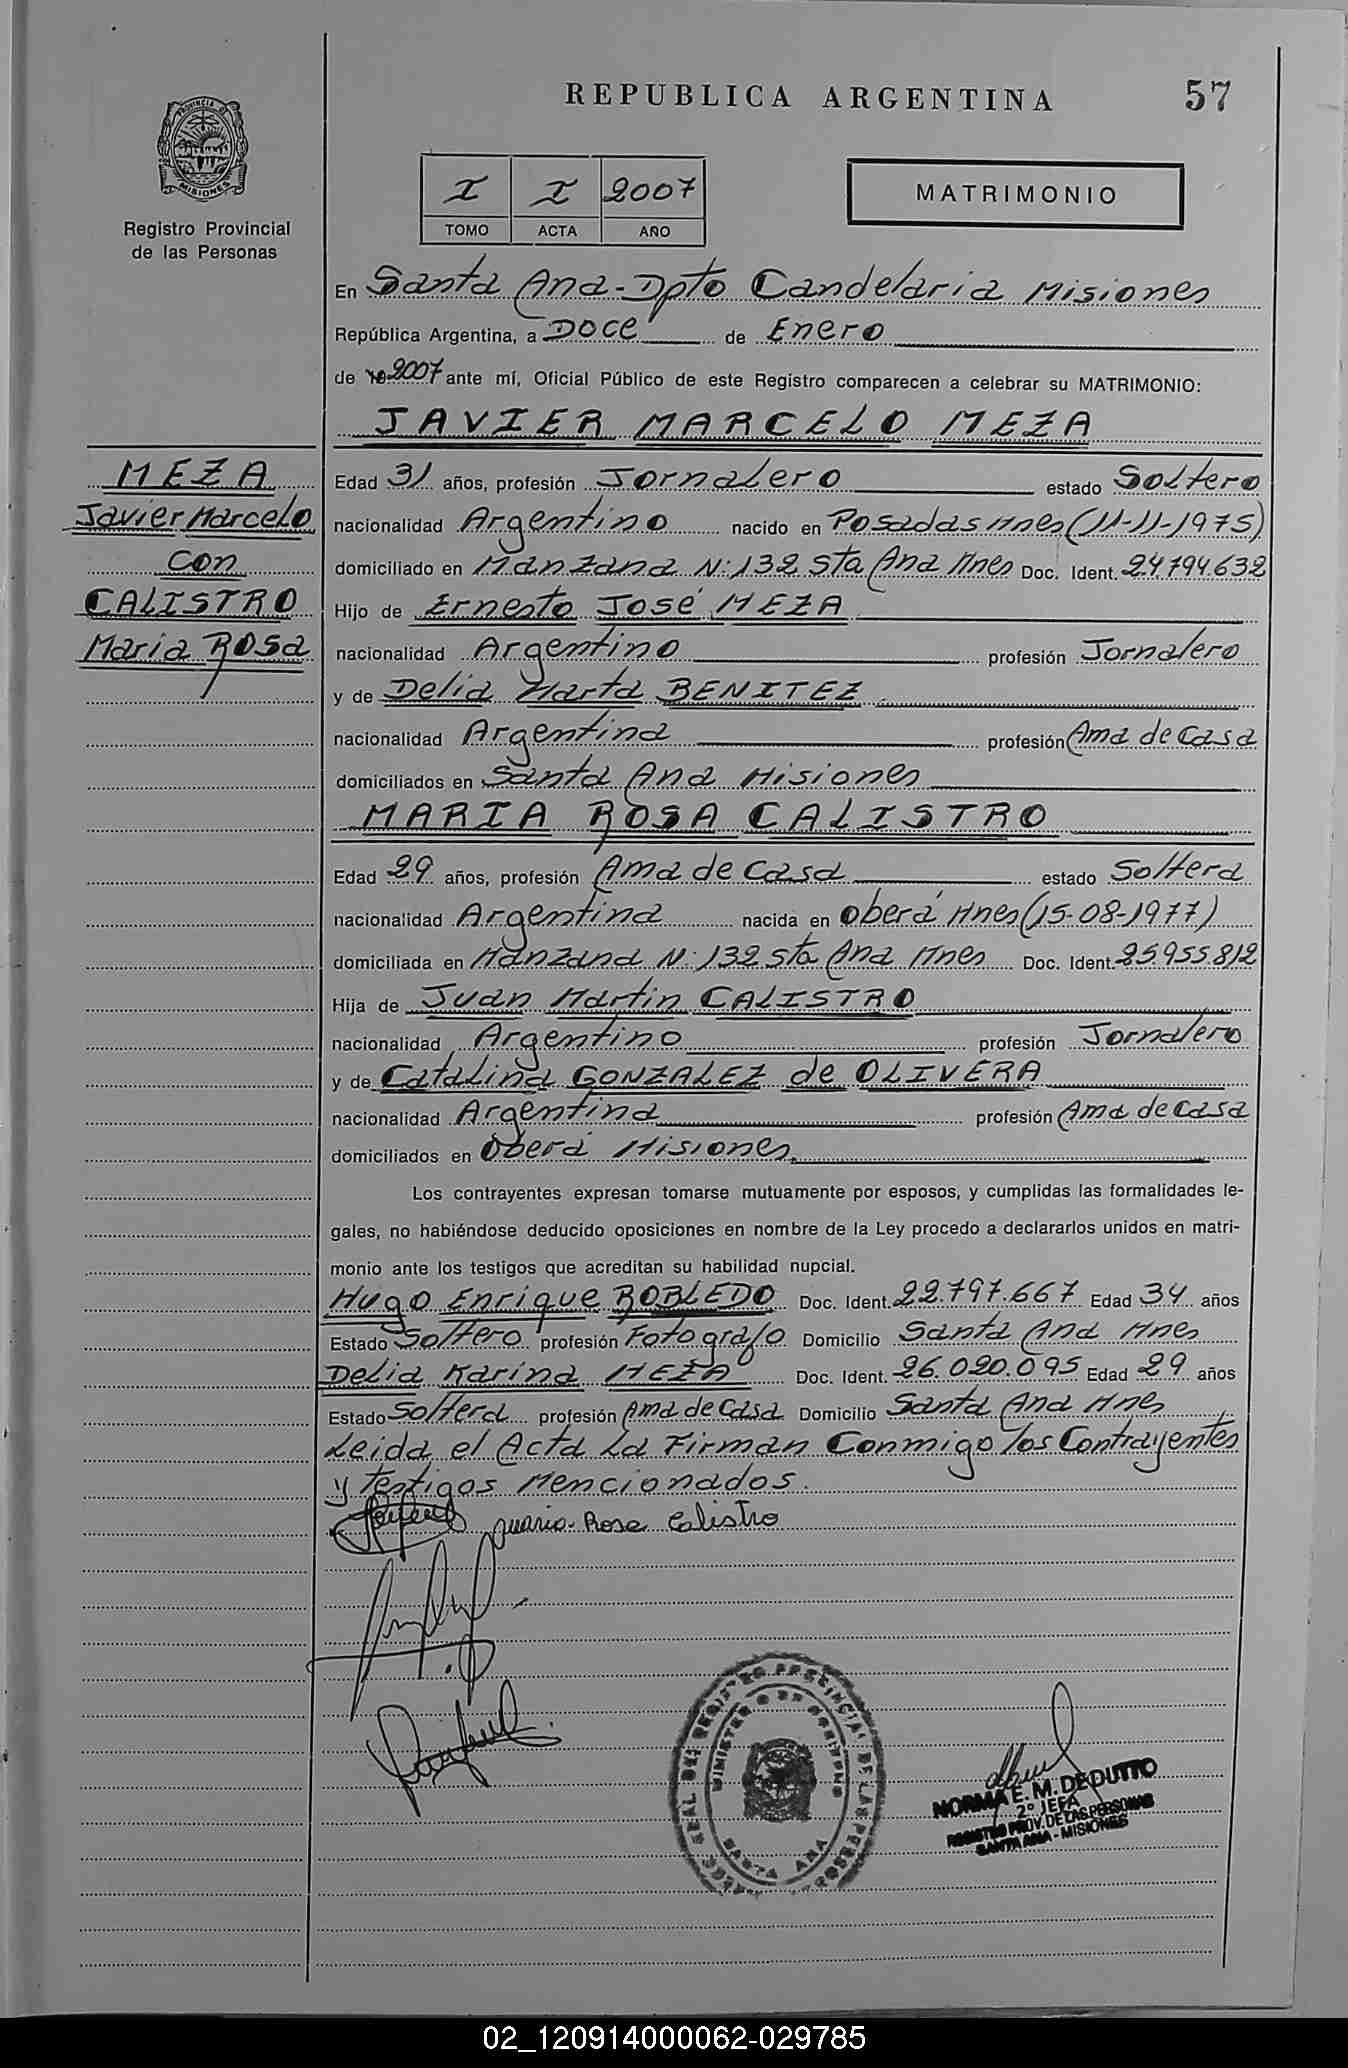 REPUBLICA ARGENTINA
57
PROVINCIA DE
MISIONES
Registro Provincial
de las Personas
I I 2007
TOMO ACTA AÑO
MATRIMONIO
En Santa Ana-Dpto Candelaria Misiones
República Argentina, a DOCE de Enero
de 2007 ante mí, Oficial Público de este Registro comparecen a celebrar su MATRIMONIO:
JAVIER MARCELO MEZA
MEZA
Javier Marcelo
con
CALISTRO
Maria ROSA
Edad 31 años, profesión Jornalero estado Soltero
nacionalidad Argentino nacido en Posadas Mnes (11-11-1975)
domiciliado en Manzana N:132 Sta Ana Mnes Doc. Ident. 24.794.632
Hijo de Ernesto José MEZA
nacionalidad Argentino profesión Jornalero
y de Delia Marta BENITEZ
nacionalidad Argentina profesión Ama de Casa
domiciliados en Santa Ana Misiones
MARIA ROSA CALISTRO
Edad 29 años, profesión Ama de Casa estado Soltera
nacionalidad Argentina nacida en Oberá Mnes (15-08-1977)
domiciliada en Manzana N:132 Sta Ana Mnes Doc. Ident. 25.955.812
Hija de Juan Martin CALISTRO
nacionalidad Argentino profesión Jornalero
y de Catalina GONZALEZ de OLIVERA
nacionalidad Argentina profesión Ama de Casa
domiciliados en Oberá Misiones
Los contrayentes expresan tomarse mutuamente por esposos, y cumplidas las formalidades le-
gales, no habiéndose deducido oposiciones en nombre de la Ley procedo a declararlos unidos en matri-
monio ante los testigos que acreditan su habilidad nupcial.
Hugo Enrique ROBLEDO Doc. Ident. 22.797.667 Edad 34 años
Estado Soltero profesión Fotografo Domicilio Santa Ana Mnes
Delia Karina MEZA Doc. Ident. 26.020.095 Edad 29 años
Estado Soltera profesión Ama de Casa Domicilio Santa Ana Mnes
Leida el Acta La Firman Conmigo los Contrayentes
y testigos Mencionados.
Maria Rosa Calistro
REGISTRO PROVINCIAL DE LAS PERSONAS
MINISTERIO DE GOBIERNO
SANTA ANA
NORMA E. M. DEDUTTO
2º JEFA
REGISTRO PROV. DE LAS PERSONAS
SANTA ANA - MISIONES
02_120914000062-029785